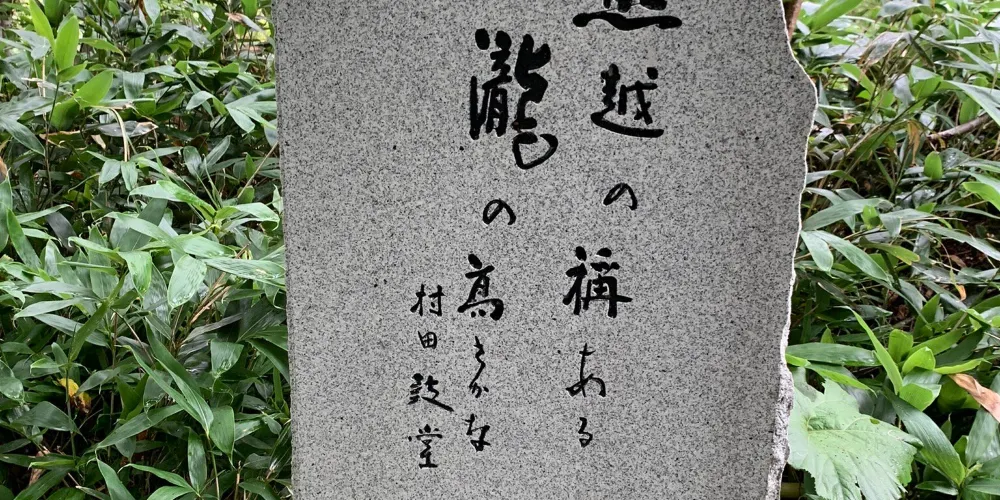 越の称ある
瀧の高さかな
村田鼓堂